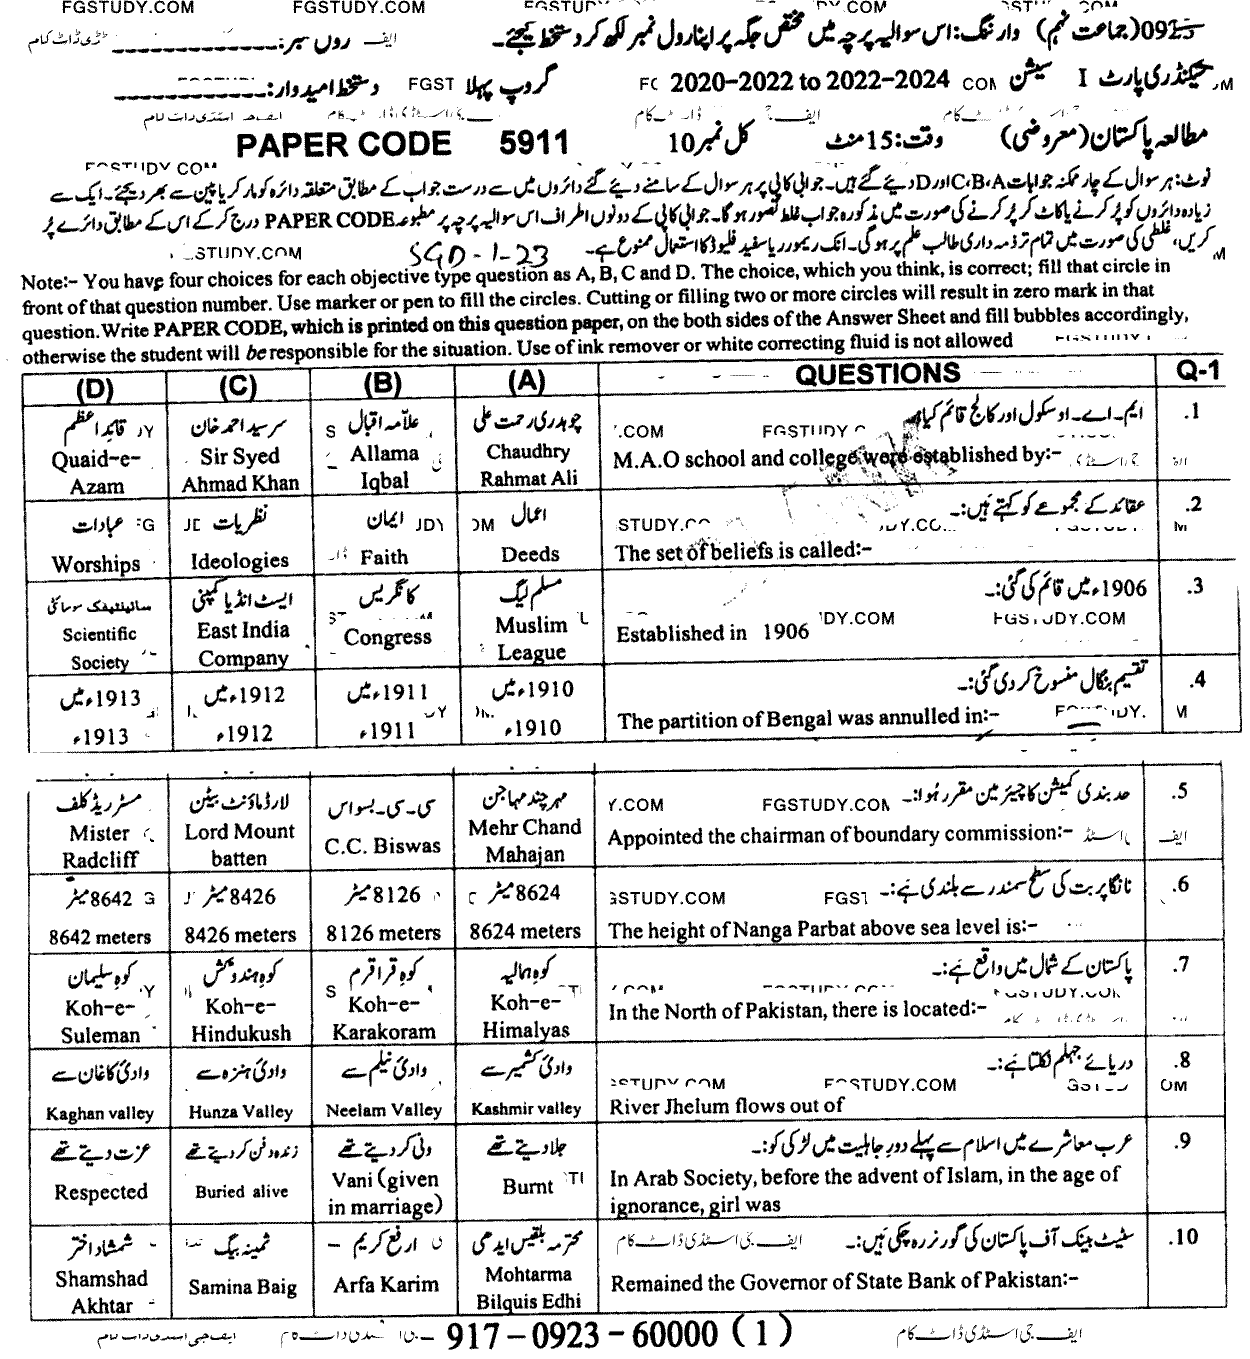 FGSTUDY.COM FGSTUDY.COM FGSTUDY.COM
0923 (جماعت نہم) وارننگ: اس سوالیہ پرچہ میں مختص جگہ پر اپنا رول نمبر لکھ کر دستخط کیجئے۔
پارٹ I سیشن 2020-2022 to 2022-2024 گروپ پہلا دستخط امیدوار: ____________
مطالعہ پاکستان (معروضی) وقت: 15 منٹ کل نمبر 10 PAPER CODE 5911
نوٹ: ہر سوال کے چار ممکنہ جوابات A، B، C اور D دیئے گئے ہیں۔ جوابی کاپی پر ہر سوال کے سامنے دیئے گئے دائروں میں سے درست جواب کے مطابق متعلقہ دائرہ کو مارکر یا پین سے بھر دیجئے۔ ایک سے
زیادہ دائروں کو پُر کرنے یا کاٹ کر پُر کرنے کی صورت میں مذکورہ جواب غلط تصور ہوگا۔ جوابی کاپی کے دونوں اطراف اس سوالیہ پرچہ پر مطبوعہ PAPER CODE درج کر کے اس کے مطابق دائرے پُر
کریں، غلطی کی صورت میں تمام تر ذمہ داری طالب علم پر ہوگی۔ انک ریمور یا سفید فلیوڈ کا استعمال ممنوع ہے۔ SGD-1-23
Note:- You have four choices for each objective type question as A, B, C and D. The choice, which you think, is correct; fill that circle in
front of that question number. Use marker or pen to fill the circles. Cutting or filling two or more circles will result in zero mark in that
question. Write PAPER CODE, which is printed on this question paper, on the both sides of the Answer Sheet and fill bubbles accordingly,
otherwise the student will be responsible for the situation. Use of ink remover or white correcting fluid is not allowed
(D) (C) (B) (A) QUESTIONS Q-1
قائداعظم سرسید احمد خان علامہ اقبال چوہدری رحمت علی ایم۔اے۔او سکول اور کالج قائم کیا: .1
Quaid-e-Azam Sir Syed Ahmad Khan Allama Iqbal Chaudhry Rahmat Ali M.A.O school and college were established by:-
عبادات نظریات ایمان اعمال عقائد کے مجموعے کو کہتے ہیں:۔ .2
Worships Ideologies Faith Deeds The set of beliefs is called:-
سائینٹیفک سوسائٹی ایسٹ انڈیا کمپنی کانگریس مسلم لیگ 1906ء میں قائم کی گئی:۔ .3
Scientific Society East India Company Congress Muslim League Established in 1906
1913ء میں 1912ء میں 1911ء میں 1910ء میں تقسیم بنگال منسوخ کر دی گئی:۔ .4
1913ء 1912ء 1911ء 1910ء The partition of Bengal was annulled in:-
مسٹر ریڈ کلف لارڈ ماؤنٹ بیٹن سی۔سی۔بسواس مہر چند مہاجن حد بندی کمیشن کا چیئرمین مقرر ہوا:۔ .5
Mister Radcliff Lord Mount batten C.C. Biswas Mehr Chand Mahajan Appointed the chairman of boundary commission:-
8642 میٹر 8426 میٹر 8126 میٹر 8624 میٹر نانگا پربت کی سطح سمندر سے بلندی ہے:۔ .6
8642 meters 8426 meters 8126 meters 8624 meters The height of Nanga Parbat above sea level is:-
کوہ سلیمان کوہ ہندوکش کوہ قراقرم کوہ ہمالیہ پاکستان کے شمال میں واقع ہے:۔ .7
Koh-e-Suleman Koh-e-Hindukush Koh-e-Karakoram Koh-e-Himalyas In the North of Pakistan, there is located:-
وادئ کاغان سے وادئ ہنزہ سے وادئ نیلم سے وادئ کشمیر سے دریائے جہلم نکلتا ہے:۔ .8
Kaghan valley Hunza Valley Neelam Valley Kashmir valley River Jhelum flows out of
عزت دیتے تھے زندہ دفن کر دیتے تھے ونی کر دیتے تھے جلا دیتے تھے عرب معاشرے میں اسلام سے پہلے دورِ جاہلیت میں لڑکی کو:۔ .9
Respected Buried alive Vani (given in marriage) Burnt In Arab Society, before the advent of Islam, in the age of ignorance, girl was
شمشاد اختر ثمینہ بیگ ارفع کریم محترمہ بلقیس ایدھی سٹیٹ بینک آف پاکستان کی گورنر رہ چکی ہیں:۔ .10
Shamshad Akhtar Samina Baig Arfa Karim Mohtarma Bilquis Edhi Remained the Governor of State Bank of Pakistan:-
917-0923-60000 (1)